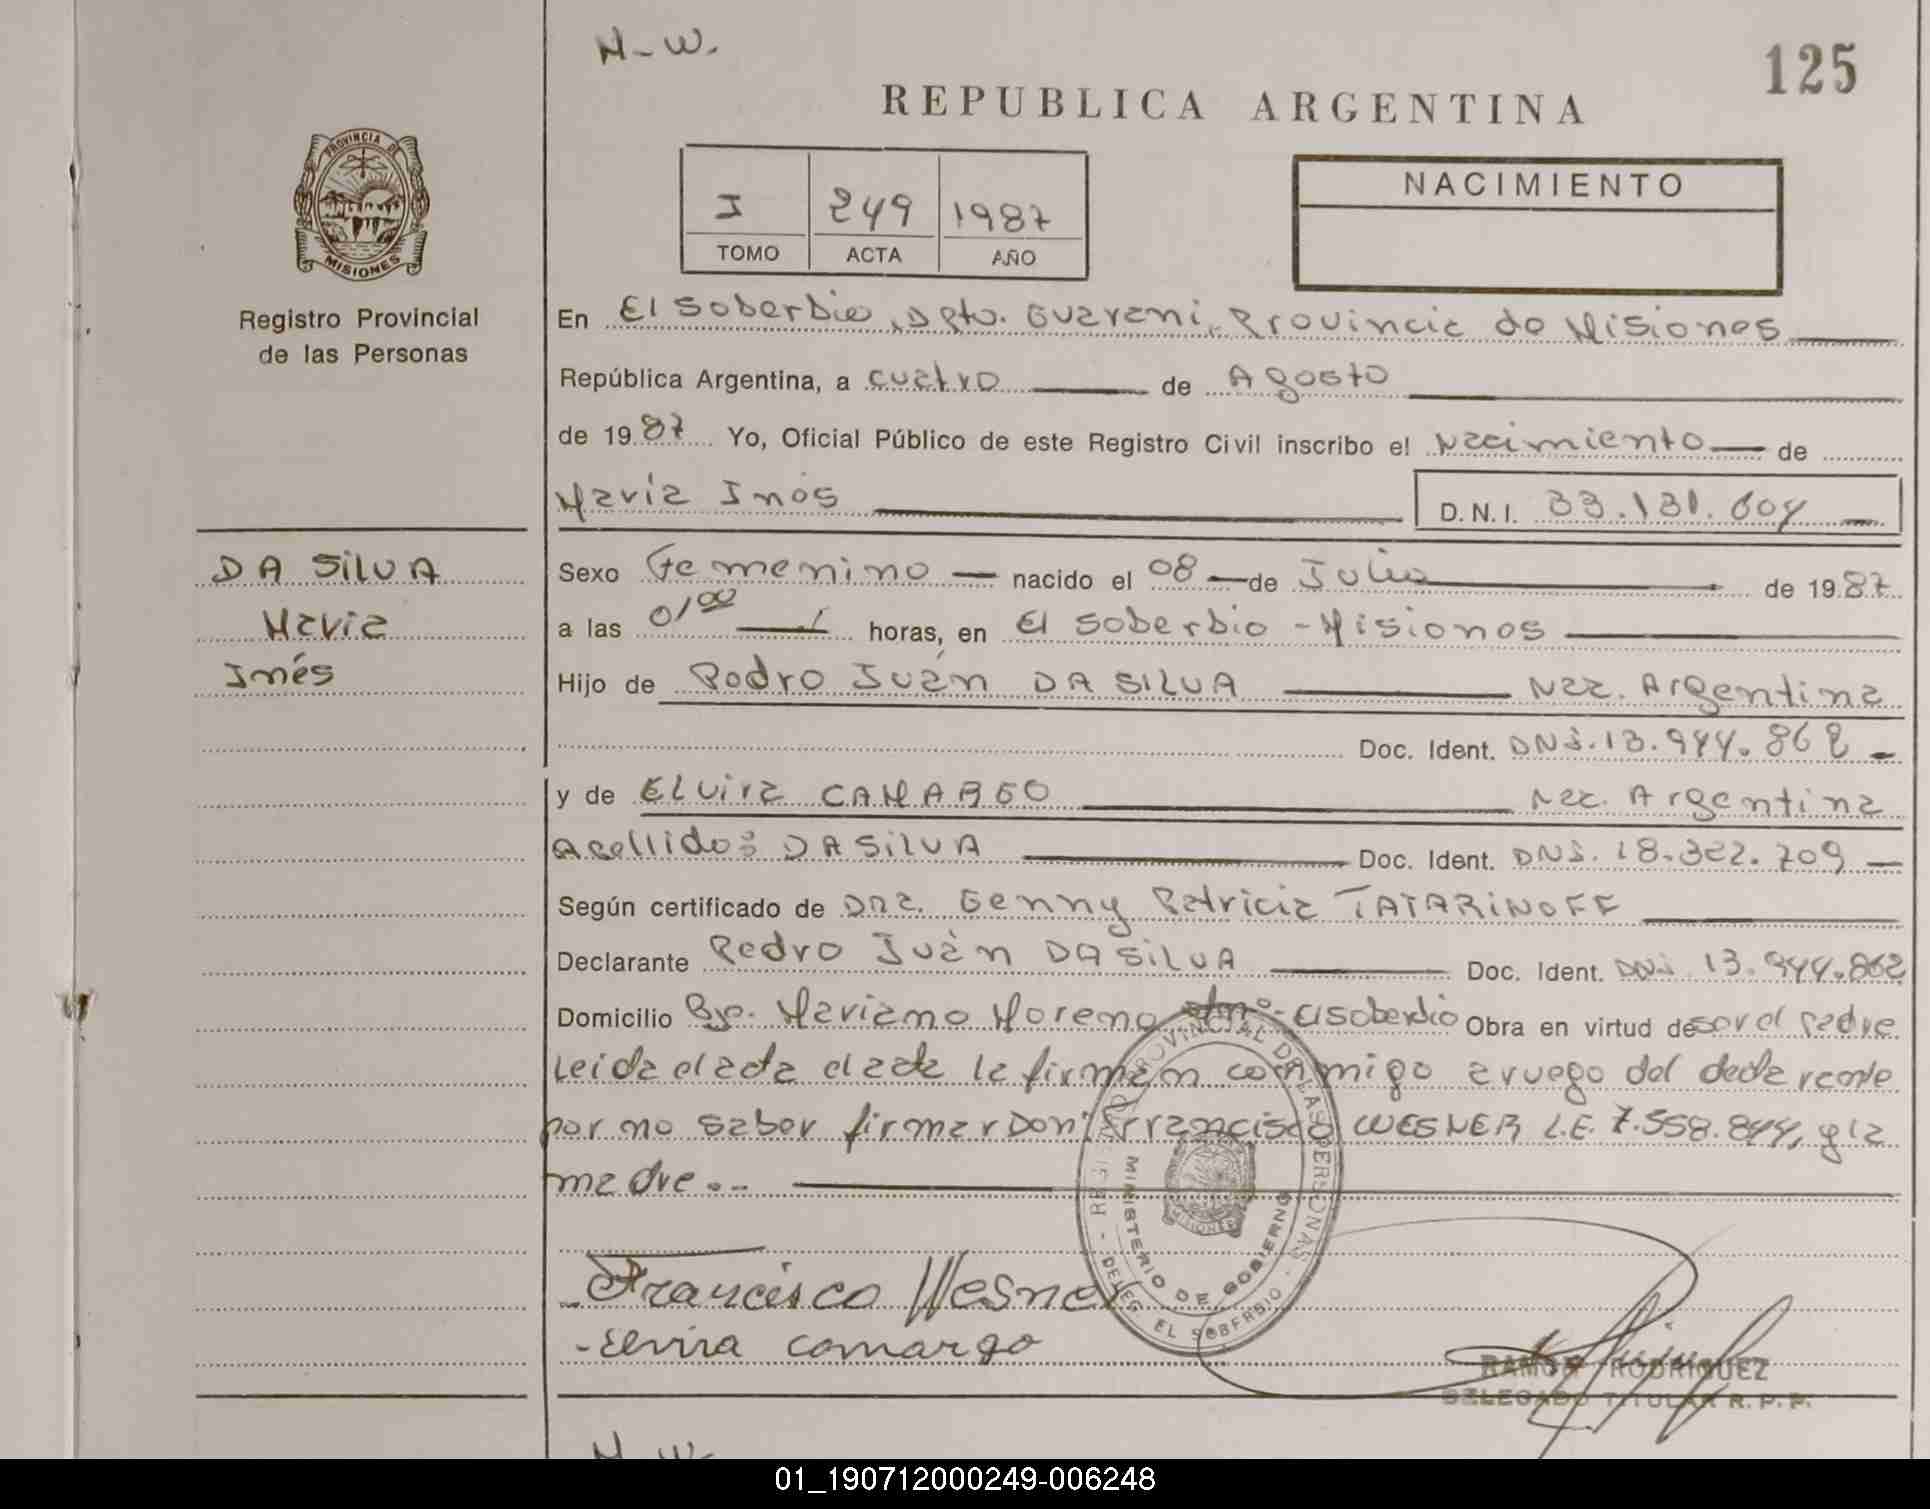 H-W.
125
REPUBLICA ARGENTINA
PROVINCIA DE
MISIONES
Registro Provincial
de las Personas
I 249 1987
TOMO ACTA AÑO
NACIMIENTO
En El Soberbio, Dpto. Guarani, Provincia de Misiones
República Argentina, a cuatro de Agosto
de 1987 Yo, Oficial Público de este Registro Civil inscribo el Nacimiento de
María Inés D.N.I. 33.131.604
DA SILVA
Maria
Inés
Sexo Femenino nacido el 08 de Julio de 1987
a las 01,00 horas, en El Soberbio - Misiones
Hijo de Pedro Juán DA SILVA Nac. Argentina
Doc. Ident. DNI. 13.944.862
y de Elvira CAMARGO Nac. Argentina
Apellido: DA SILVA Doc. Ident. DNI. 18.322.709
Según certificado de Dra. Genny Patricia TATARINOFF
Declarante Pedro Juán DA SILVA Doc. Ident. DNI 13.944.862
Domicilio Bo. Mariano Moreno - El Soberbio Obra en virtud de ser el padre
Leida el acta la firman conmigo a ruego del declarante
por no saber firmar Don Francisco WESNER L.E. 7.558.844, y la
madre.--
REGISTRO PROVINCIAL DE LAS PERSONAS
MINISTERIO DE GOBIERNO
MISIONES
DELEG. EL SOBERBIO
Francisco Wesner
- Elvira Camargo
RAMON RODRIGUEZ
DELEGADO TITULAR R. P. P.
H-W.
01_190712000249-006248